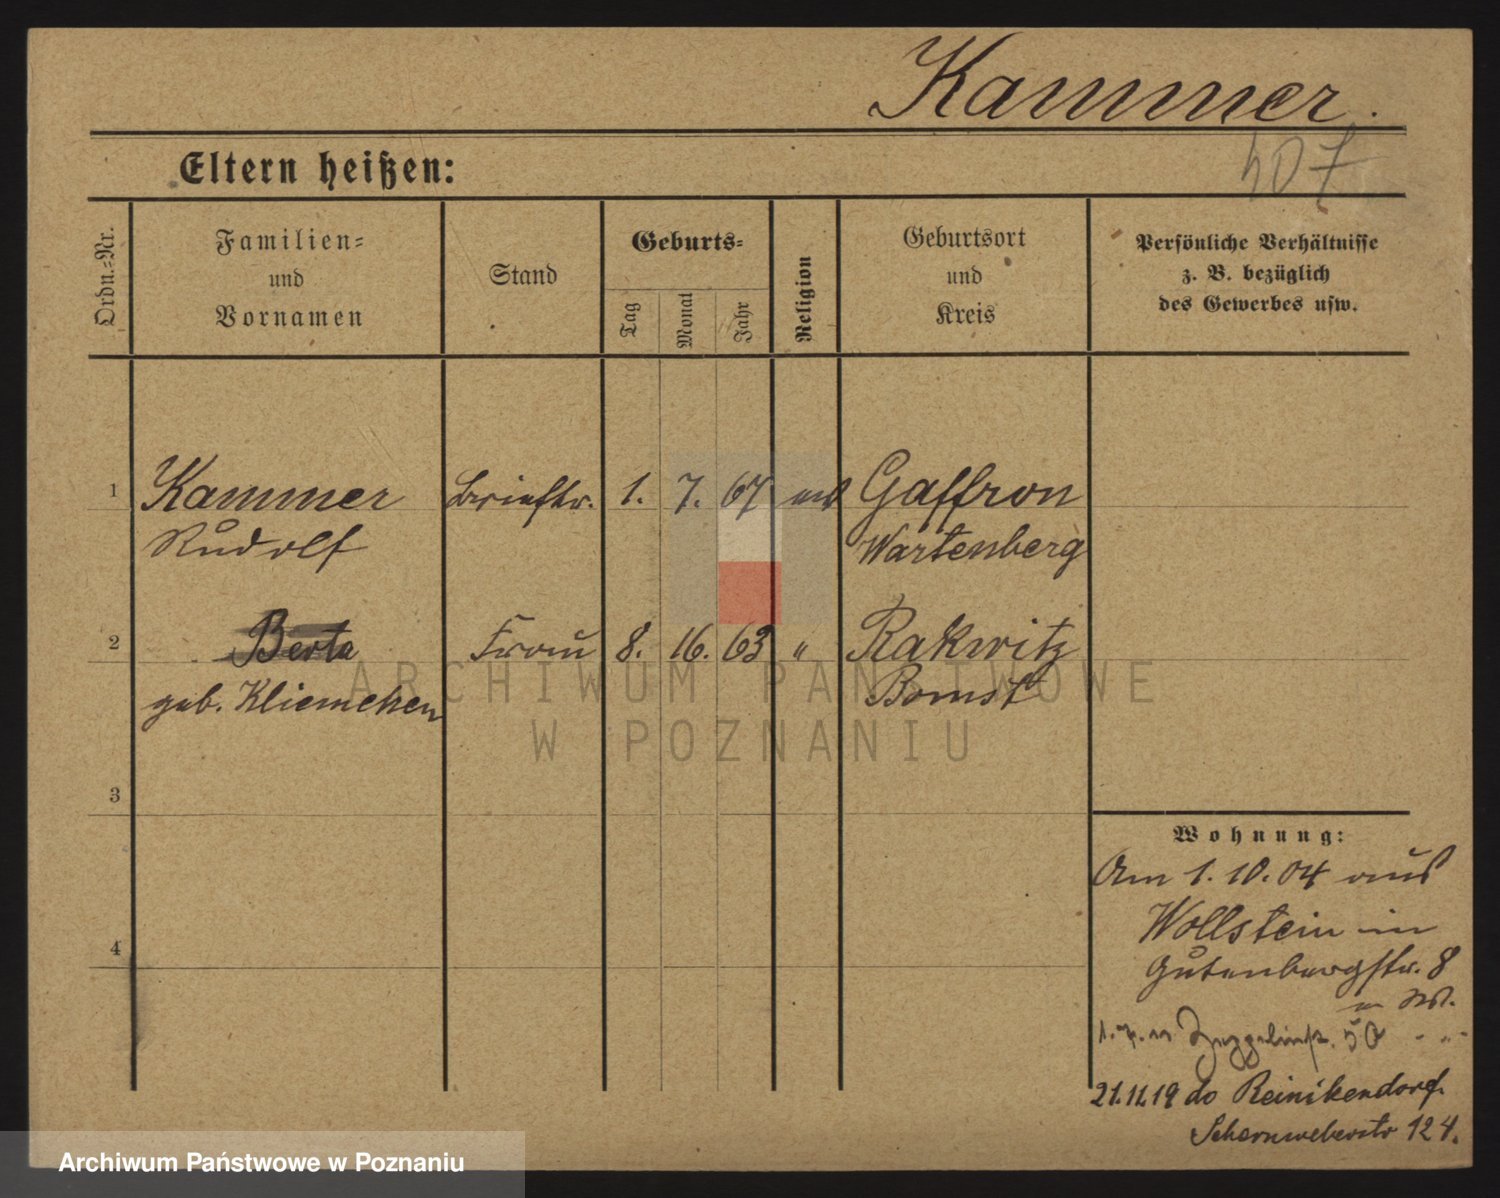 Kammer.
407
Eltern heißen:
Ordn.=Nr.
Familien=
und
Vornamen
Stand
Geburts=
Tag
Monat
Jahr
Religion
Geburtsort
und
Kreis
Persönliche Verhältnisse
z. B. bezüglich
des Gewerbes usw.
1
Kammer Brieftr. 1. 7. 67 Gaffron
Rudolf Wartenberg
2
Berta Frau 8. 16. 63 " Rakwitz
geb. Kliemchen Bomst
3
4
Wohnung:
Am 1. 10. 04 aus
Wollstein in
Gutenbergstr. 8
21.11.19 do Reinikendorf.
Scharnweberstr 124.
ARCHIWUM PAŃSTWOWE
W POZNANIU
Archiwum Państwowe w Poznaniu